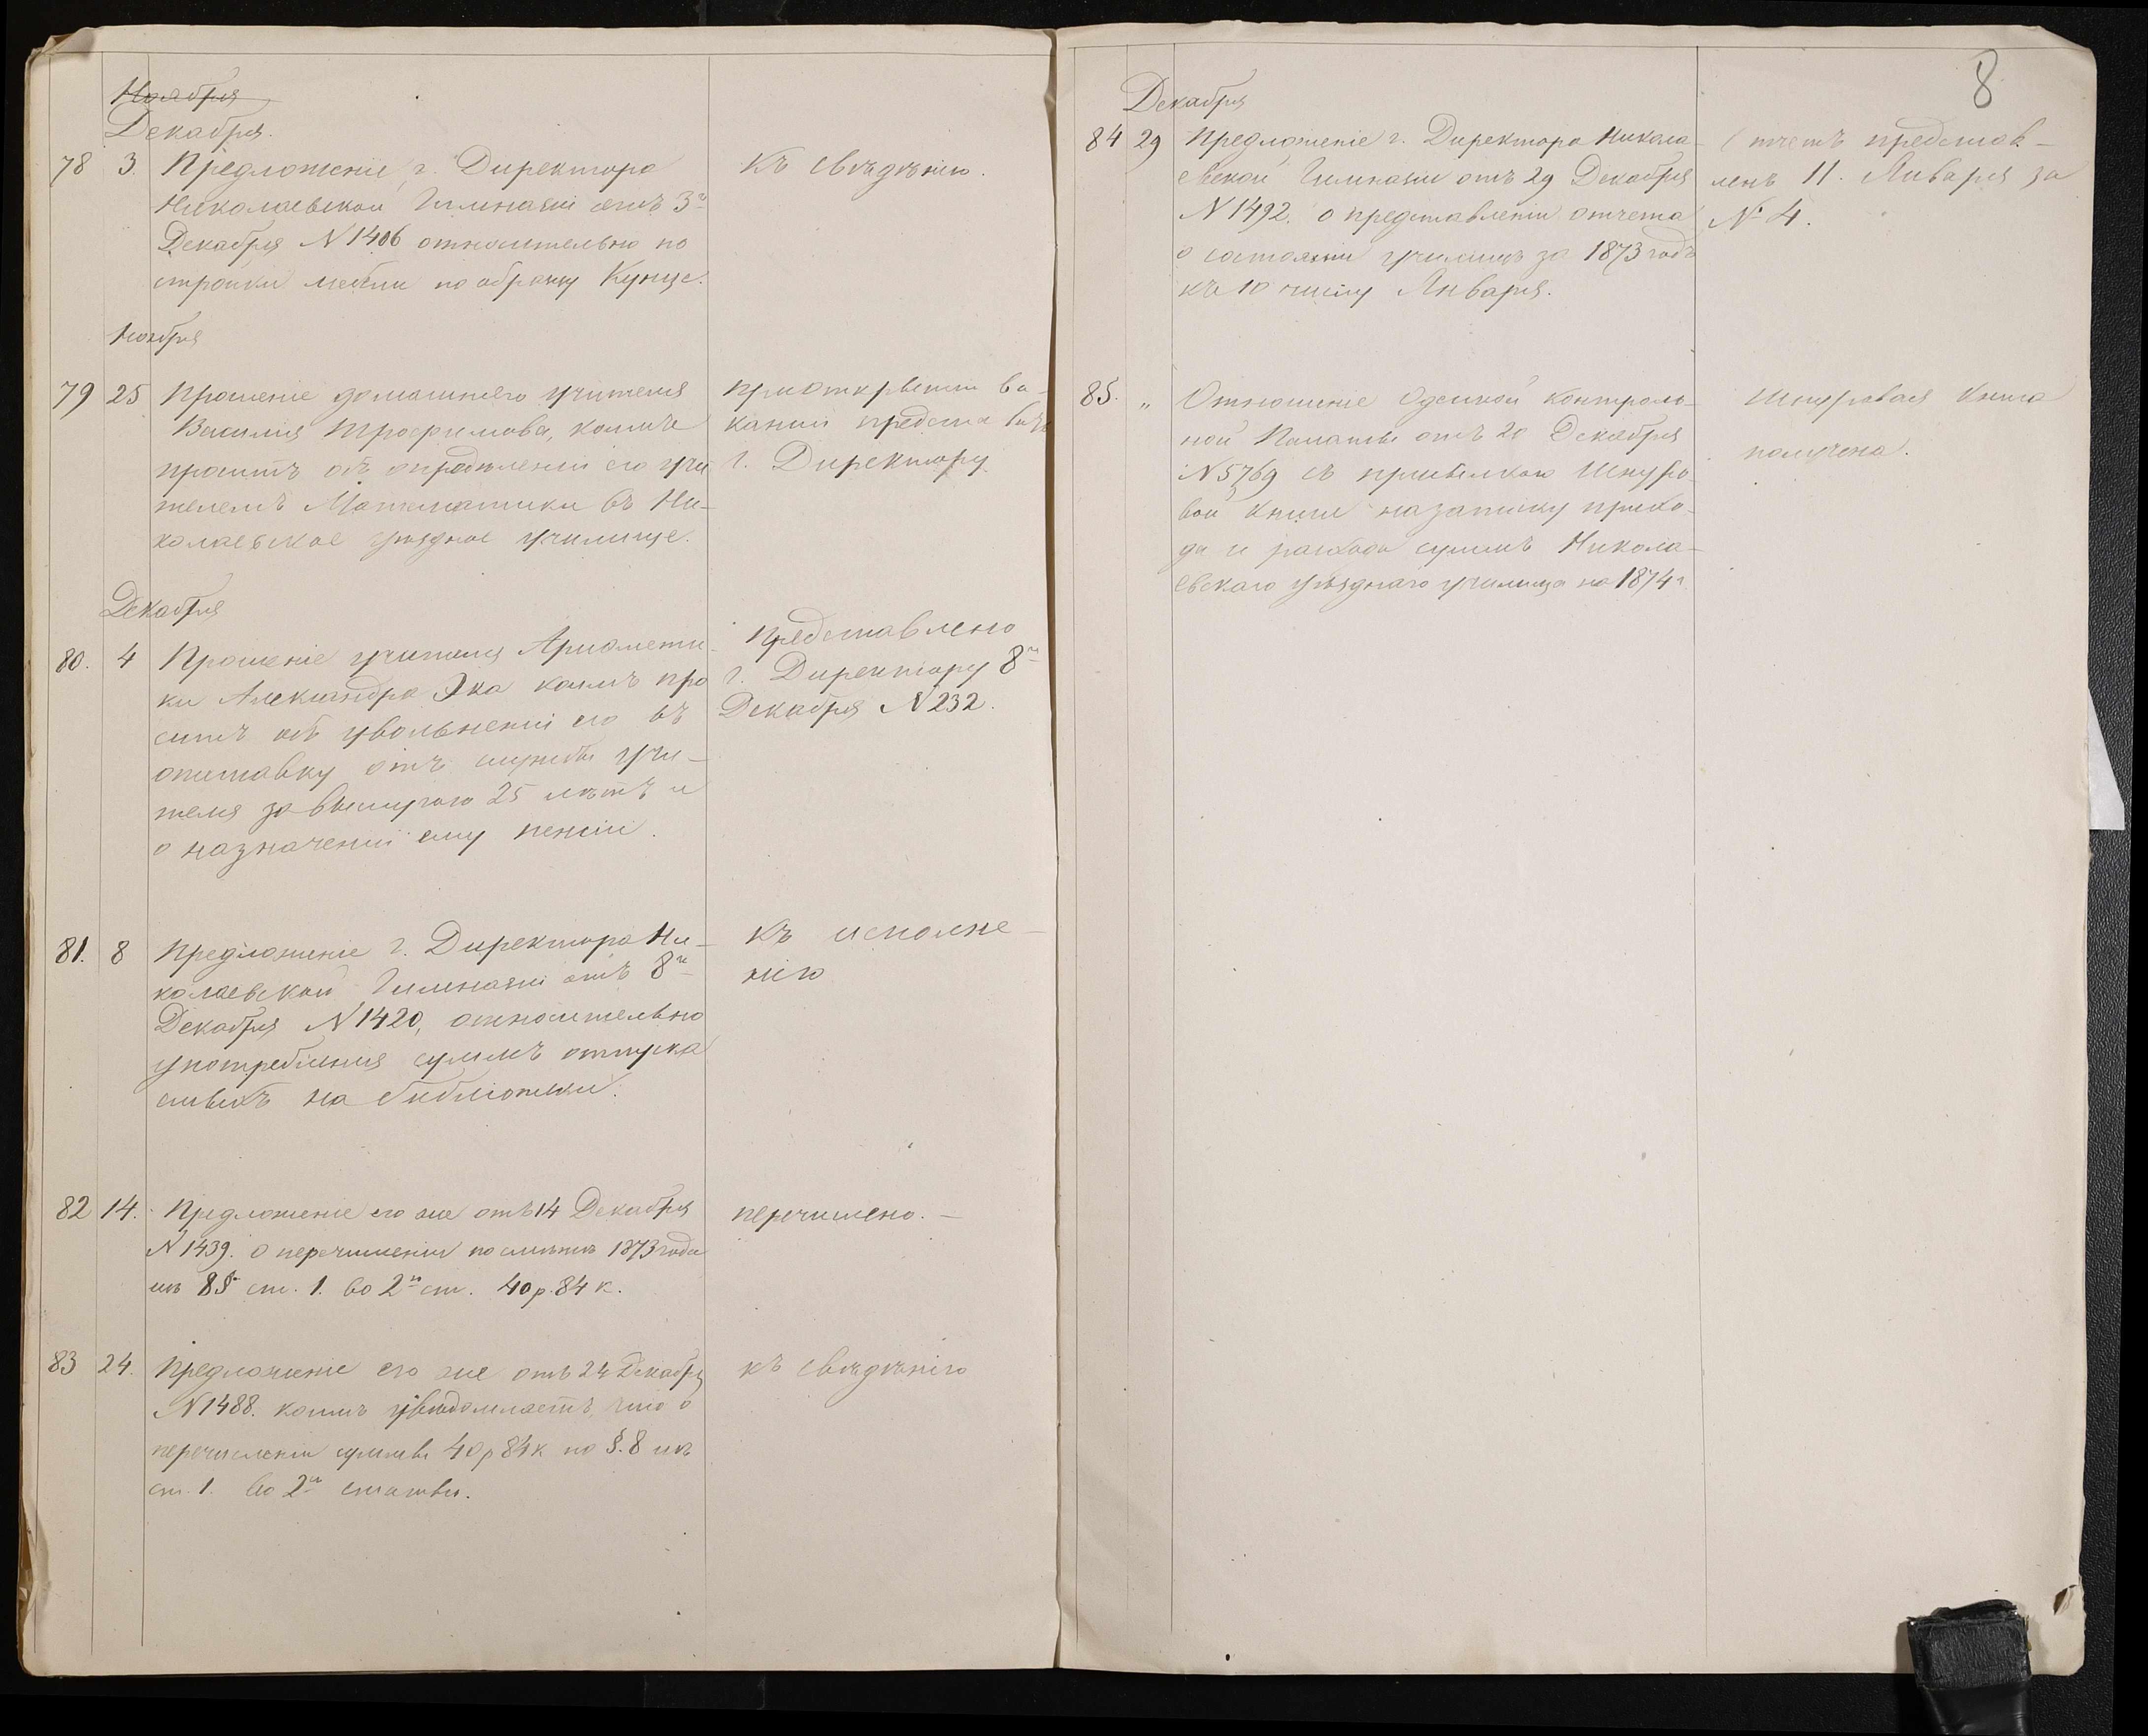 Ноября
Декабря.
78 3. Предложеніе г. Директора
Николаевской Гимназіи отъ 3го
Декабря N 1406 относительно по
стройки мебели по образцу Кунце.
Къ свѣдѣнію.
Ноября
79 25 Прошеніе домашняго учителя
Василія Трофимова, коимъ
проситъ объ опредѣленіи его учи
телемъ Математики въ Ни-
колаевское уѣздное училище.
При открытіи ва-
кансіи представить
г. Директору.
Декабря
80. 4 Прошеніе учителя Ариѳмети-
ки Александра Эка коимъ про
ситъ объ увольненіи его въ
отставку отъ службы учи-
теля за выслугою 25 лѣтъ и
о назначеніи ему пенсіи.
Представлено
г. Директору 8го
Декабря N 232.
81. 8 Предложеніе г. Директора Ни-
колаевской Гимназіи отъ 8го
Декабря N 1420, относительно
употребленія суммъ отпуска
емыхъ на библіотеки.
Къ исполне-
нію
82 14. Предложеніе его же отъ 14 Декабря
N 1439. о перечисленіи по смѣтѣ 1873 года
изъ 8 § ст. 1. во 2ю ст. 40 р. 84 к.
перечислено. —
83 24. Предложеніе его же отъ 24 Декабря
N 1488. коимъ увѣдомляетъ, что о
перечисленіи суммы 40 р 84 к по §. 8 изъ
ст. 1. во 2ю
къ свѣдѣнію
8
Декабря
84 29 Предложеніе г. Директора Никола-
евской Гимназіи отъ 29 Декабря
N 1492. о представленіи отчета
о состояніи училищъ за 1873 годъ
къ 10 числу Января.
Отчетъ представ-
ленъ 11. Января за
№ 4.
85. „ Отношеніе Одесской Контроль-
ной Палаты отъ 20 Декабря
N 5769 съ присылкою Шнуро-
вой книги на записку прихо-
да и расхода суммъ Никола-
евскаго уѣзднаго училища на 1874 г.
Шнуровая книга
получена.